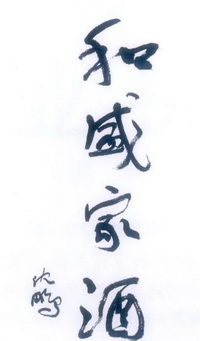 和盛家酒
沈鹏